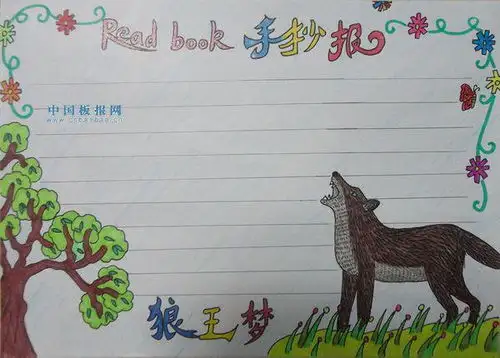 Read book 手抄报
中国板报网
狼王梦